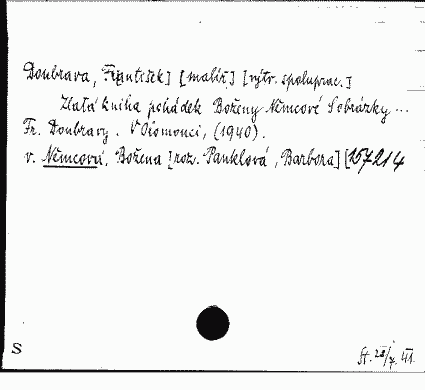 Doubrava, František] [malíř] [výtv. spoluprac.]
Zlatá kniha pohádek Boženy Němcové S obrázky ...
Fr. Doubravy. V Olomouci, (1940).
v. Němcová, Božena [roz. Panklová, Barbora] [157214
S
St. 28/7. 41.